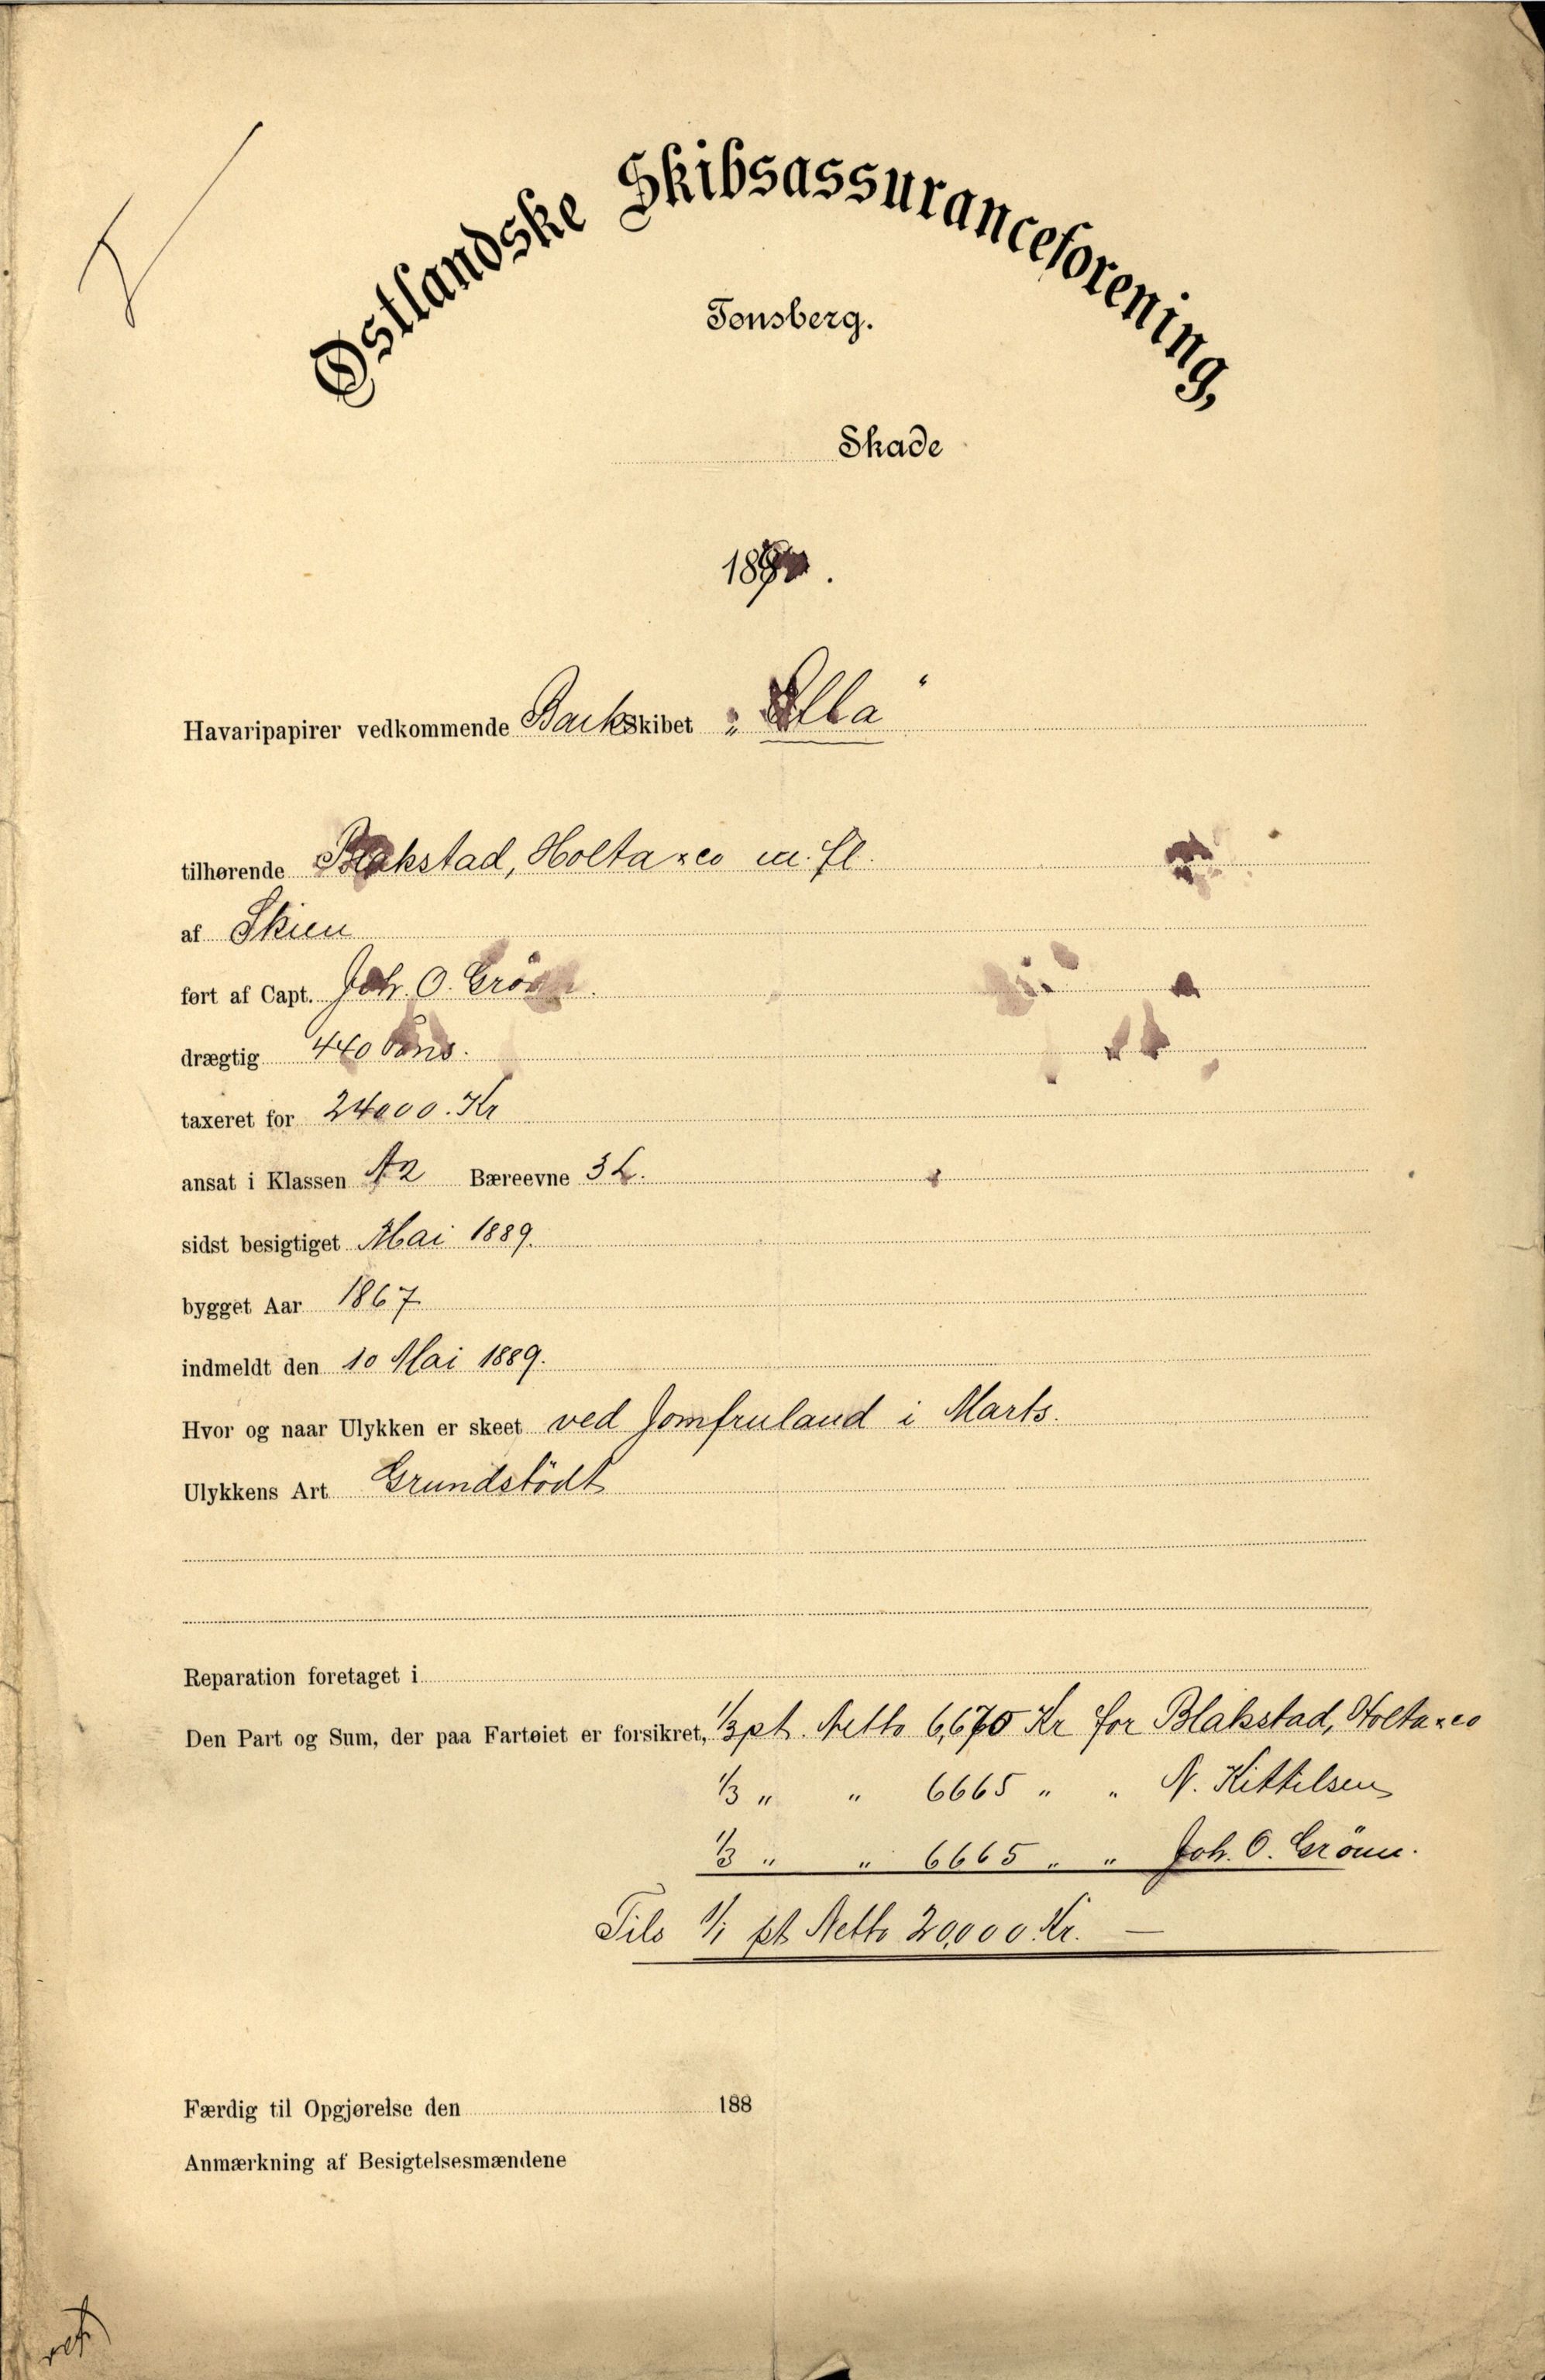 Østlandske Skibsassuranceforening,
Tønsberg.
Skade
1890.
Havaripapirer vedkommende Barkskibet "Ella"
tilhørende Blakstad, Holta & Co m. fl.
af Skien
ført af Capt. Joh. O. Grönn.
drægtig 440 Tons.
taxeret for 24000. Kr
ansat i Klassen A2 Bæreevne 3 L.
sidst besigtiget Mai 1889.
bygget Aar 1867
indmeldt den 10 Mai 1889.
Hvor og naar Ulykken er skeet ved Jomfruland i Marts.
Ulykkens Art Grundstödt
Reparation foretaget i
Den Part og Sum, der paa Fartøiet er forsikret, 1/3 pt. Netto 6,670 Kr for Blakstad, Holta & Co
1/3 " " 6665 " " N. Kittilsen
1/3 " " 6665 " " Joh. O. Grönn.
Tils 1/1 pt Netto 20,000 Kr. —
Færdig til Opgjørelse den 188
Anmærkning af Besigtelsesmændene